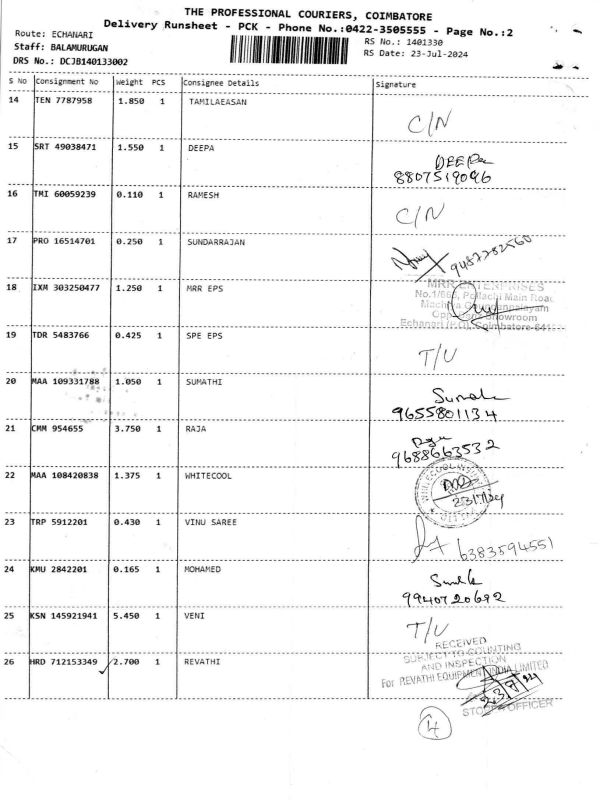 THE PROFESSIONAL COURIERS, COIMBATORE
Delivery Runsheet - PCK - Phone No.:0422-3505555 - Page No.:2
Route: ECHANARI
Staff: BALAMURUGAN
DRS No.: DCJB140133002
RS No.: 1401330
RS Date: 23-Jul-2024
S No Consignment No Weight PCS Consignee Details Signature
14 TEN 7787958 1.850 1 TAMILAEASAN C/N
15 SRT 49038471 1.550 1 DEEPA DEEPa
8807519096
16 TMI 60059239 0.110 1 RAMESH C/N
17 PRO 16514701 0.250 1 SUNDARRAJAN 9487282560
18 IXM 303250477 1.250 1 MRR EPS MRR ENTERPRISES
Pollachi Main Road
Showroom
Coimbatore
19 TDR 5483766 0.425 1 SPE EPS T/U
20 MAA 109331788 1.050 1 SUMATHI
9655801134
21 CMM 954655 3.750 1 RAJA
9688663532
22 MAA 108420838 1.375 1 WHITECOOL
23 TRP 5912201 0.430 1 VINU SAREE 6383594551
24 KMU 2842201 0.165 1 MOHAMED
9940720692
25 KSN 145921941 5.450 1 VENI T/U
26 HRD 712153349 2.700 1 REVATHI RECEIVED
SUBJECT TO COUNTING
AND INSPECTION
For REVATHI EQUIPMENT INDIA LIMITED
OFFICER
4